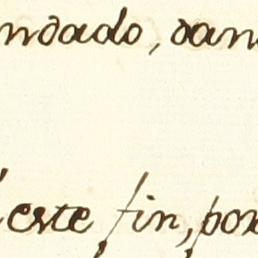 ndado, dan
este fin, por